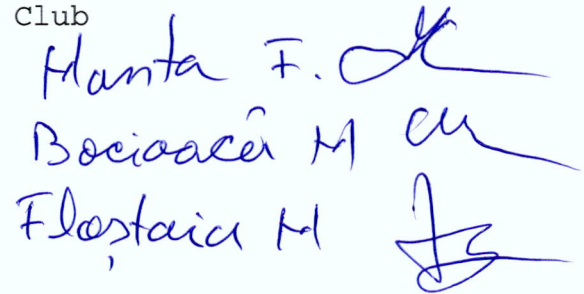 Club
Manta F.
Bocioacă M
Floștoiu M